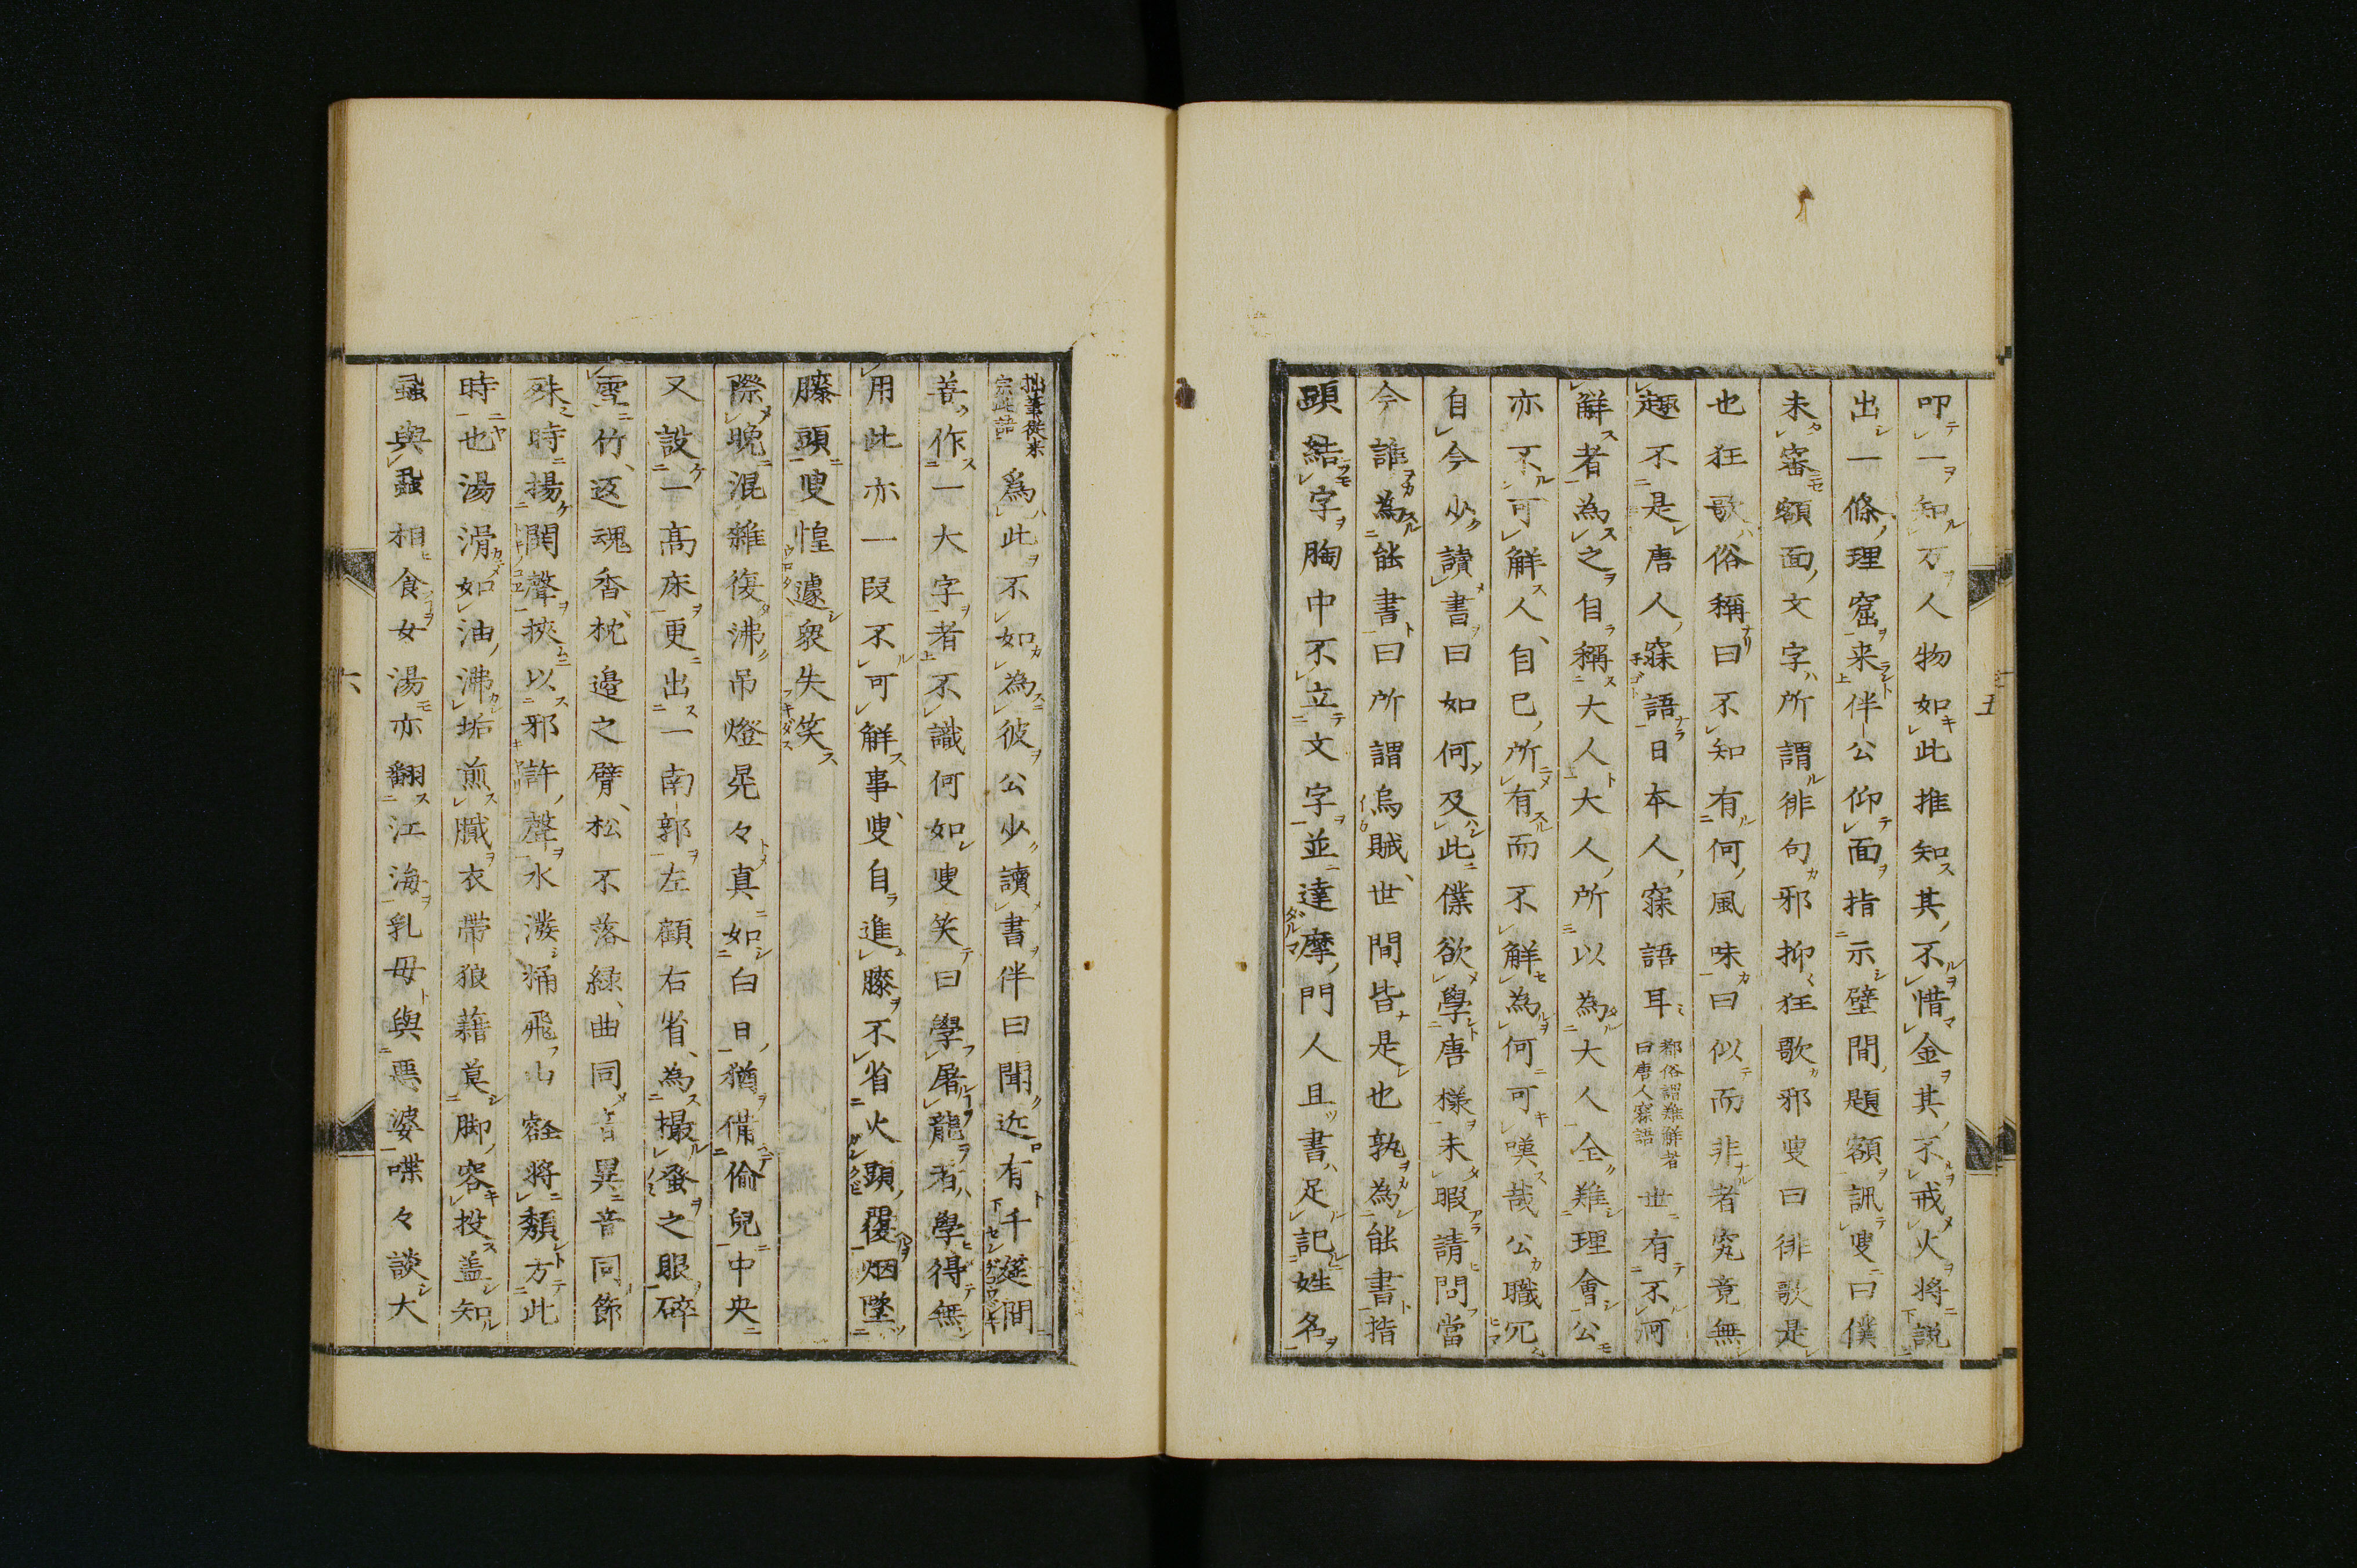 叩一知万人物如此推知其不惜金其不戒火將說
出一條理窟来伴公仰面指示壁間題額訊叟曰僕
未審額面文字所謂徘句邪抑狂歌邪叟曰徘歌是
也狂歌俗稱曰不知有何風味曰似而非者究竟無
趣不是唐人寐語日本人寐語耳
鄙俗謂難解者
曰唐人寐語
世有不可
解者為之自稱大人大人所以為大人仝難理會公
亦不可解人自巳所有而不解為何可嘆哉公職冗
自今少讀書曰如何及此僕欲學唐樣未暇請問當
今誰為能書曰所謂烏賊世間皆是也孰為能書指
頭結字胸中不立文字並達摩門人且書足記姓名
五
拙筆從来
宗此語
為此不如為彼公少讀書伴曰聞近有千筵間
善作一大字者不識何如叟笑曰學屠龍者學得無
用此亦一段不可解事叟自進膝不省火頭覆烟墜
膝頭叟惶遽衆失笑
際晚混雜復沸吊燈晃々真如白日猶備偷兒中央
又設一高床更出一南郭左顧右省為撮蚤之眼碎
雪竹返魂香枕邉之臂松不落緑曲同音異音同節
殊時揚関聲挾以邪許聲水潑桶飛山谿將頽方此
時也湯滑如油沸垢煎膩衣帶狼藉莫脚容投盖知
蝨與蝨相食女湯亦翻江海乳母與悪婆喋々談大
六